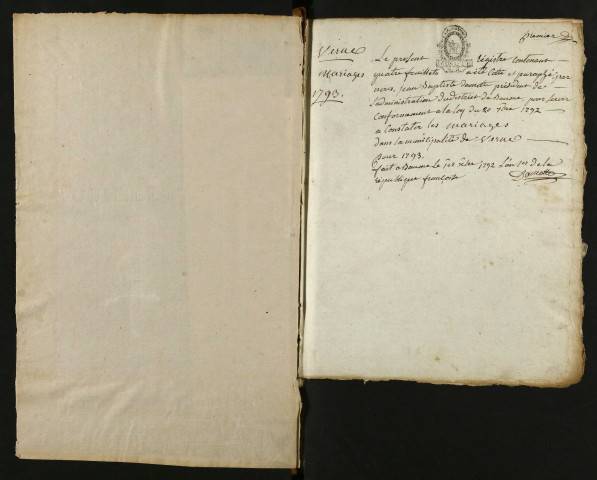 premier
Viserne
Mariages
1793.
Le présent registre contenant
quatre feuillets a été cotté et paraphé par
nous, Jean Baptiste président de
l'administration du district de Beaune, pour servir
conformément a la loy du 20 7bre 1792
a constater les mariages
dans la municipalité de
pour 1793.
fait a Beaune le 1er Xbre 1792 l'an 1er de la
république françoise